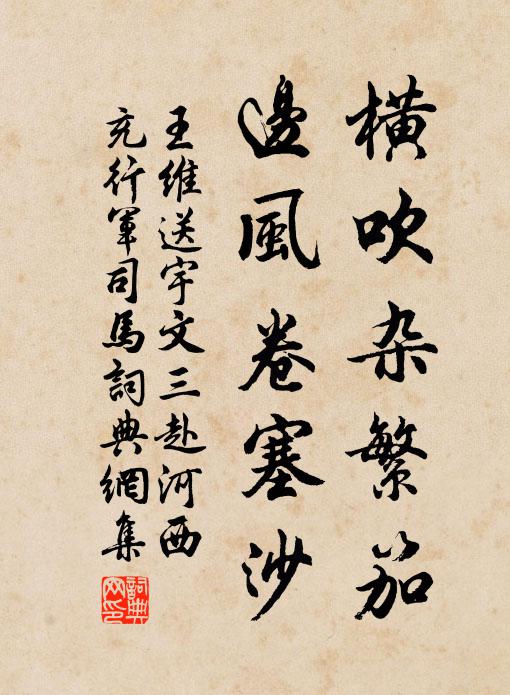 横吹杂繁笳
邊風卷塞沙
王維送宇文三赴河西
充行軍司馬詞典網集
詞典網印